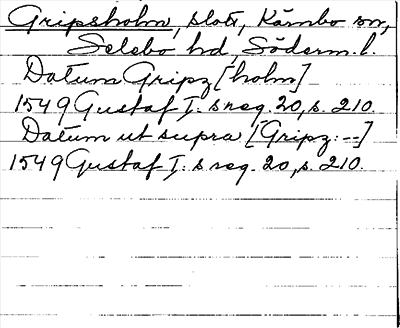 Gripsholm, slott, Kärnbo sn,
Selebo hd, Söderm. l.
Datum Gripz [holm]
1549 Gustaf I:s reg. 20, s. 210.
Datum ut supra [Gripz: --]
1549 Gustaf I:s reg. 20, s. 210.